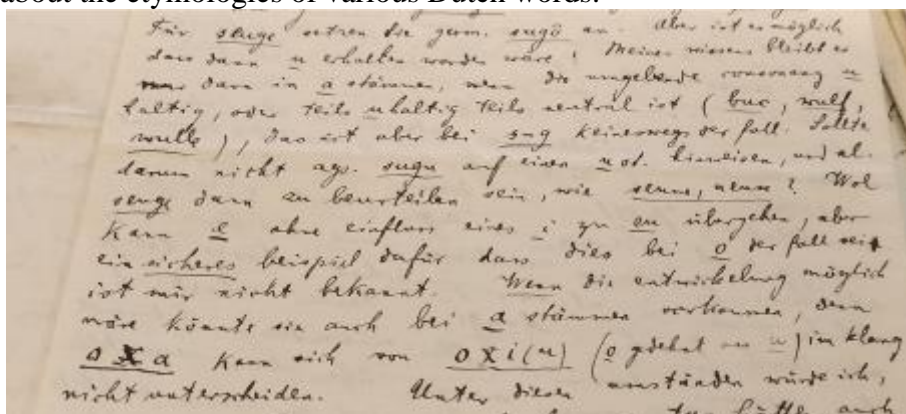 about the etymologies of various Dutch words.
Für seuge setzen sie germ. sugô an. Aber ist es möglich
dass dann u erhalten worden wäre? Meines wissens bleibt es
nur dann in a stämmen, wenn die umgebende consonanz u
haltig, oder teils uhaltig teils neutral ist (buc, wulf,
wulle), das ist aber bei s-g keineswegs der fall. Sollte
darum nicht ags. sugu auf einen u st. hinweisen, und al.
seuge dann zu beurteilen sein, wie seune, neuse? Wol
kann e ohne einfluss eines i zu eu übergehen, aber
ein sicheres beispiel dafür dass dies bei o der fall sei
ist mir nicht bekannt. Wenn die entwickelung möglich
wäre könnte sie auch bei a stämmen vorkommen, denn
o x a kann sich von o x i (u) (o gdehnt u) im klang
nicht unterscheiden. Unter diesen umständen würde ich,